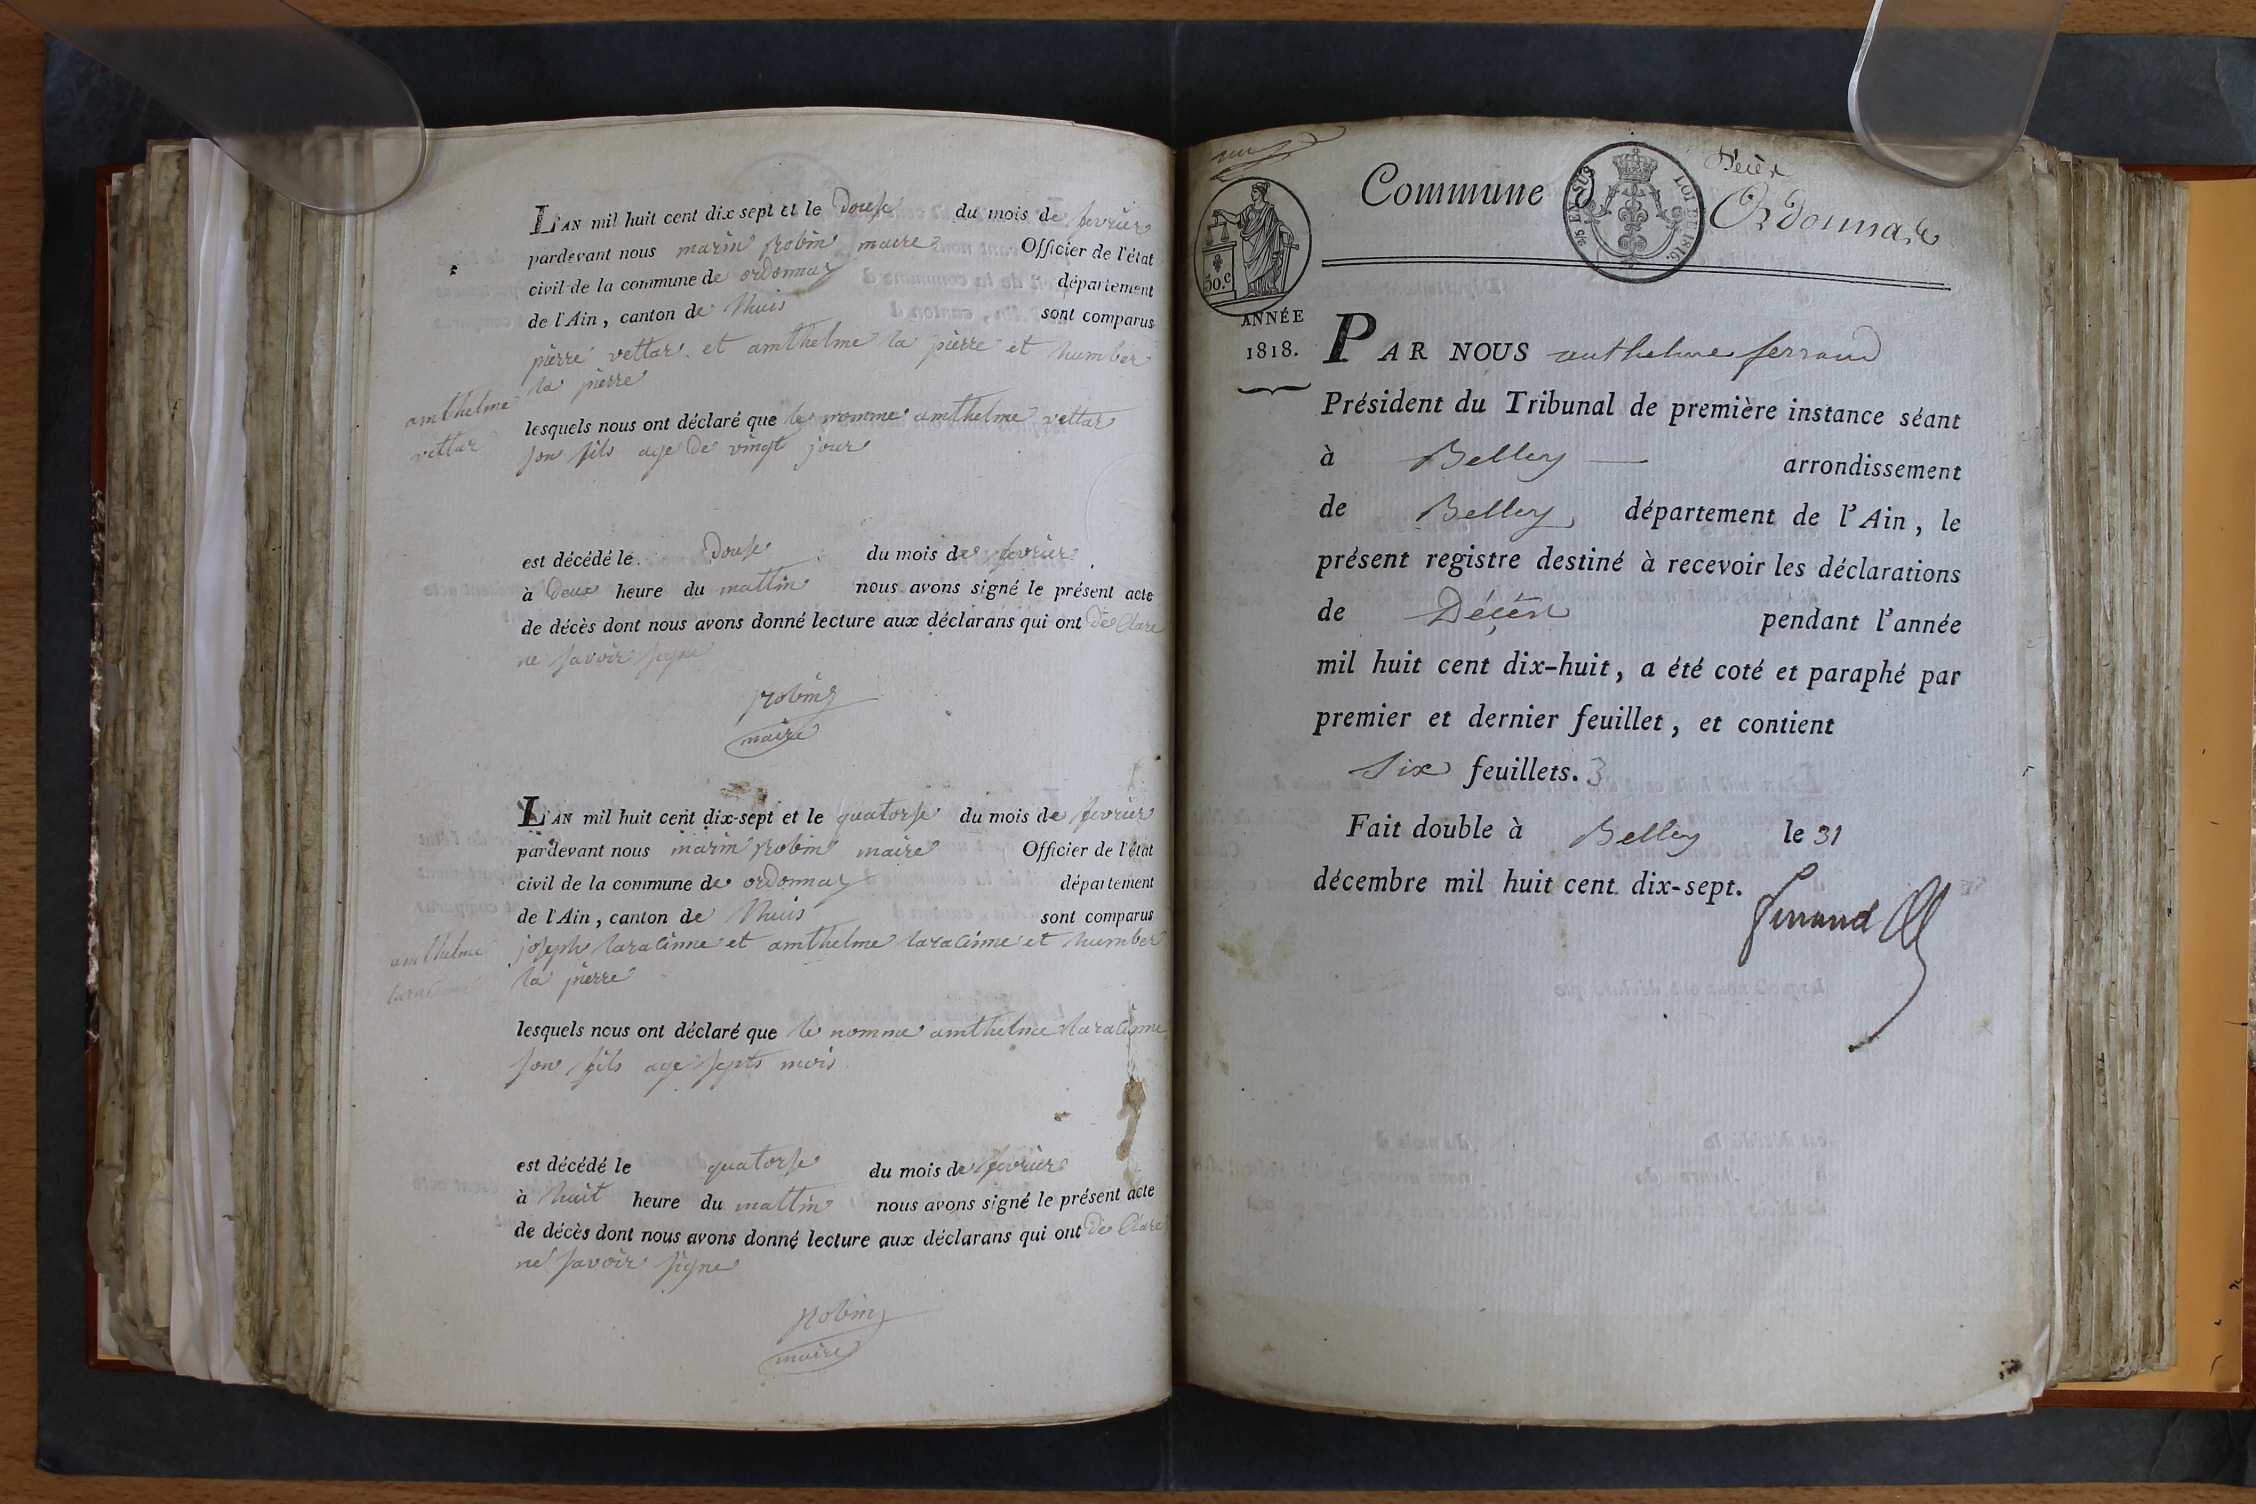 L'AN mil huit cent dix sept et le douse du mois de fevrier
pardevant nous marin robin maire Officier de l'état
civil de la commune de ordonnaz département
de l'Ain, canton de Lhuis sont comparus
pierre vettar et amthelme la pierre et humber
la pierre
amthelme
vettar
lesquels nous ont déclaré que le nomme amthelme vettar
son fils age de vingt jour
est décédé le douse du mois de fevrier
à deux heure du mattin nous avons signé le présent acte
de décès dont nous avons donné lecture aux déclarans qui ont de Clare
ne savoir signe
robin
maire
L'AN mil huit cent dix-sept et le quatorse du mois de fevrier
pardevant nous marin robin maire Officier de l'état
civil de la commune de ordonnaz département
de l'Ain, canton de Lhuis sont comparus
joseph laracinne et amthelme laracinne et humber
la pierre
amthelme
laracinne
lesquels nous ont déclaré que le nomme amthelme laracinne
son fils age septs mois
est décédé le quatorse du mois de fevrier
à huit heure du mattin nous avons signé le présent acte
de décès dont nous avons donné lecture aux déclarans qui ont de Clare
ne savoir signe
robin
maire
Commune d
Ordonnaz
25 EN SUS
LOI DE 1816.
50.c
ANNÉE
1818.
PAR NOUS anthelme ferrand
Président du Tribunal de première instance séant
à Belley arrondissement
de Belley, département de l'Ain, le
présent registre destiné à recevoir les déclarations
de Décès pendant l'année
mil huit cent dix-huit, a été coté et paraphé par
premier et dernier feuillet, et contient
Six feuillets. 3
Fait double à Belley le 31
décembre mil huit cent dix-sept.
ferrand